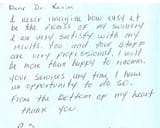 Dear Dr. Kevin
I never imagine how easy it
be the process of my surgery
I am very satisfy with my
results. You and your staff
are very professional. I will
be more than happy to recomm.
your services any time I have
an opportunity to do so.
From the bottom of my heart
thank you.